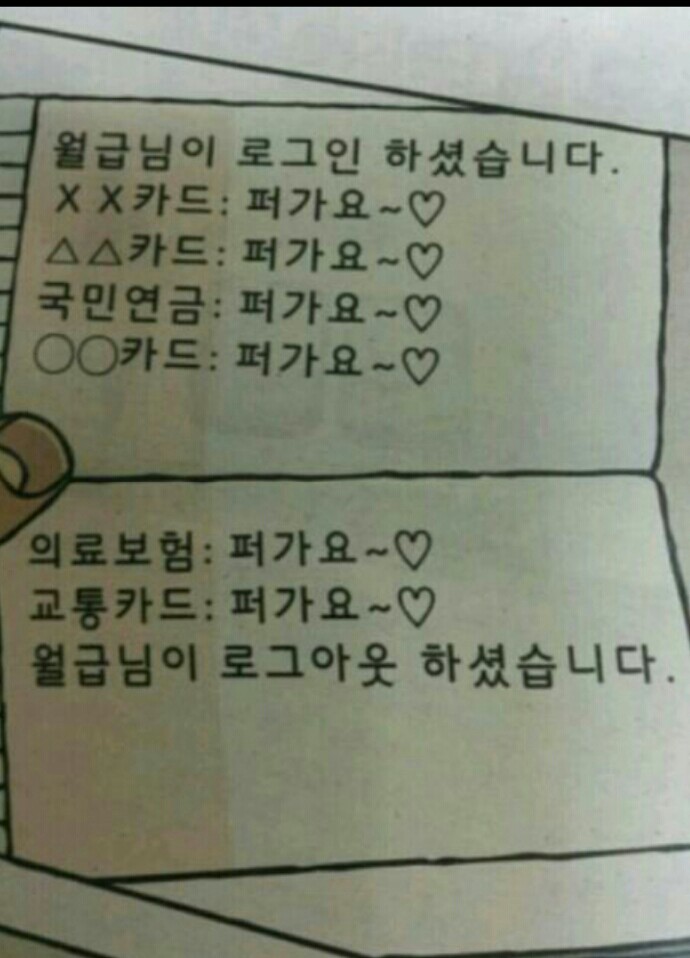 월급님이 로그인 하셨습니다.
X X카드: 퍼가요~♡
△△카드: 퍼가요~♡
국민연금: 퍼가요~♡
○○카드: 퍼가요~♡
의료보험: 퍼가요~♡
교통카드: 퍼가요~♡
월급님이 로그아웃 하셨습니다.